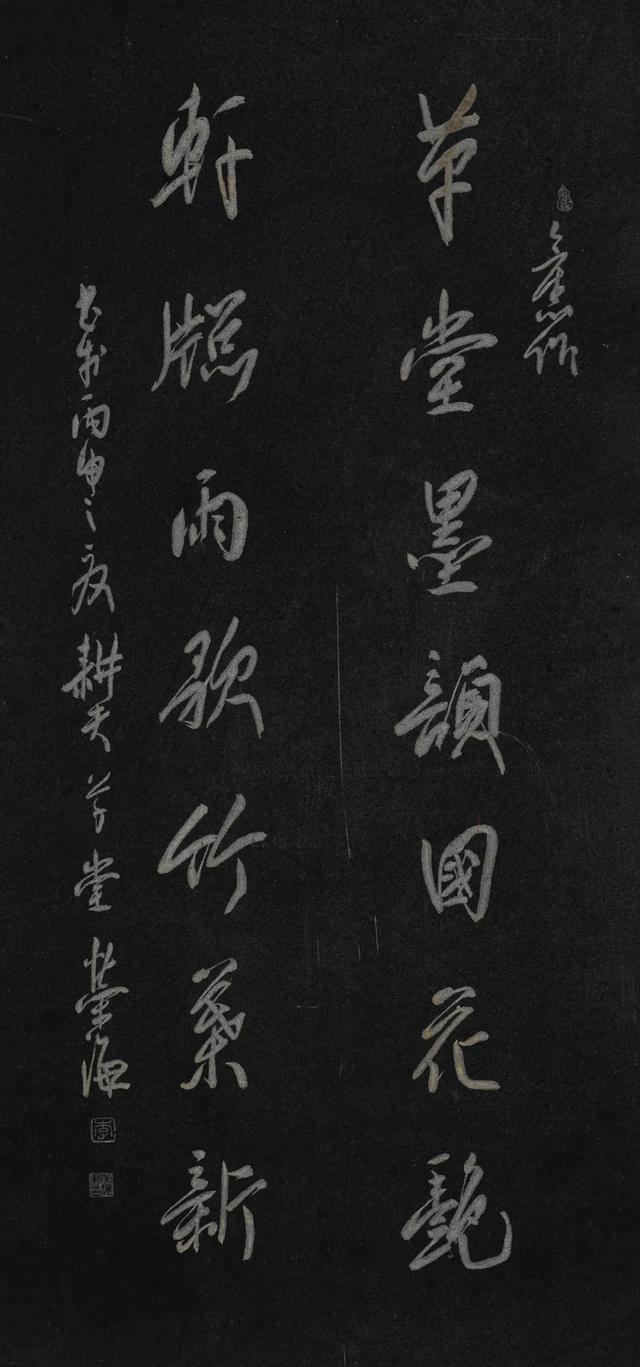 作
草堂墨韻國花艷
軒牕雨歌竹葉新
書於丙申之夏耕夫草堂榮海
李